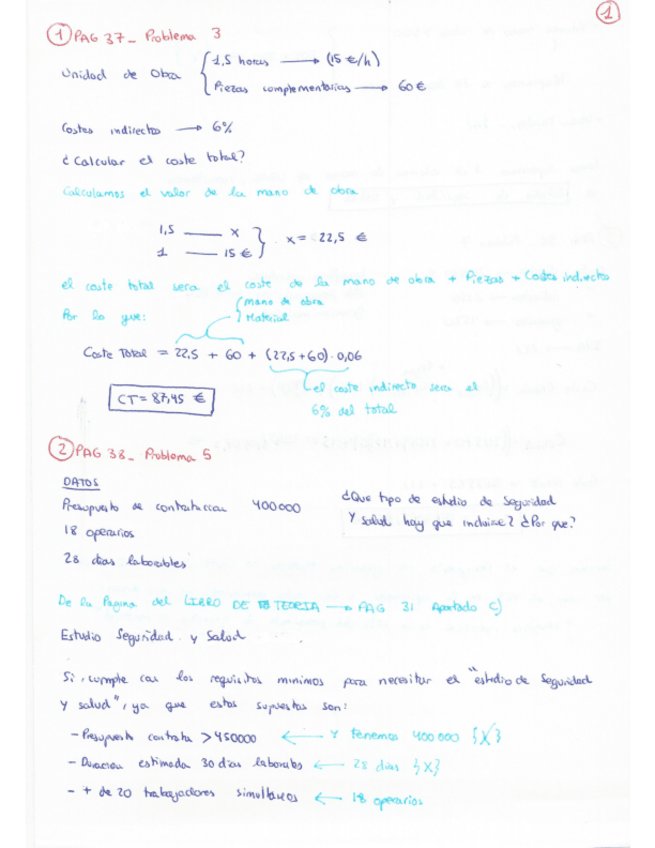 1
1 PAG 37_ Problema 3
Unidad de Obra { 1,5 horas → (15 €/h)
Piezas complementarias → 60 €
Costes indirectos → 6%
¿Calcular el coste total?
Calculamos el valor de la mano de obra
1,5 — x
1 — 15 € } x = 22,5 €
el coste total sera el coste de la mano de obra + Piezas + Costes indirectos
Por lo que: { mano de obra
Material
Coste Total = 22,5 + 60 + (22,5+60)·0,06
CT = 87,45 €
el coste indirecto sera el
6% del total
2 PAG 38_ Problema 5
DATOS
Presupuesto de contratacion 400000
18 operarios
28 dias laborables
¿Que tipo de estudio de Seguridad
Y Salud hay que incluise? ¿Por que?
De la Pagina del LIBRO DE TEORIA → PAG 31 Apartado C)
Estudio Seguridad y Salud
Si, cumple con los requisitos minimos para necesitar el "estudio de Seguridad
Y salud", ya que estos supuestos son:
- Presupuesto contrata > 450000 ← Y tenemos 400 000 {X}
- Duracion estimada 30 dias laborales ← 28 dias {X}
- + de 20 trabajadores simultaneos ← 18 operarios